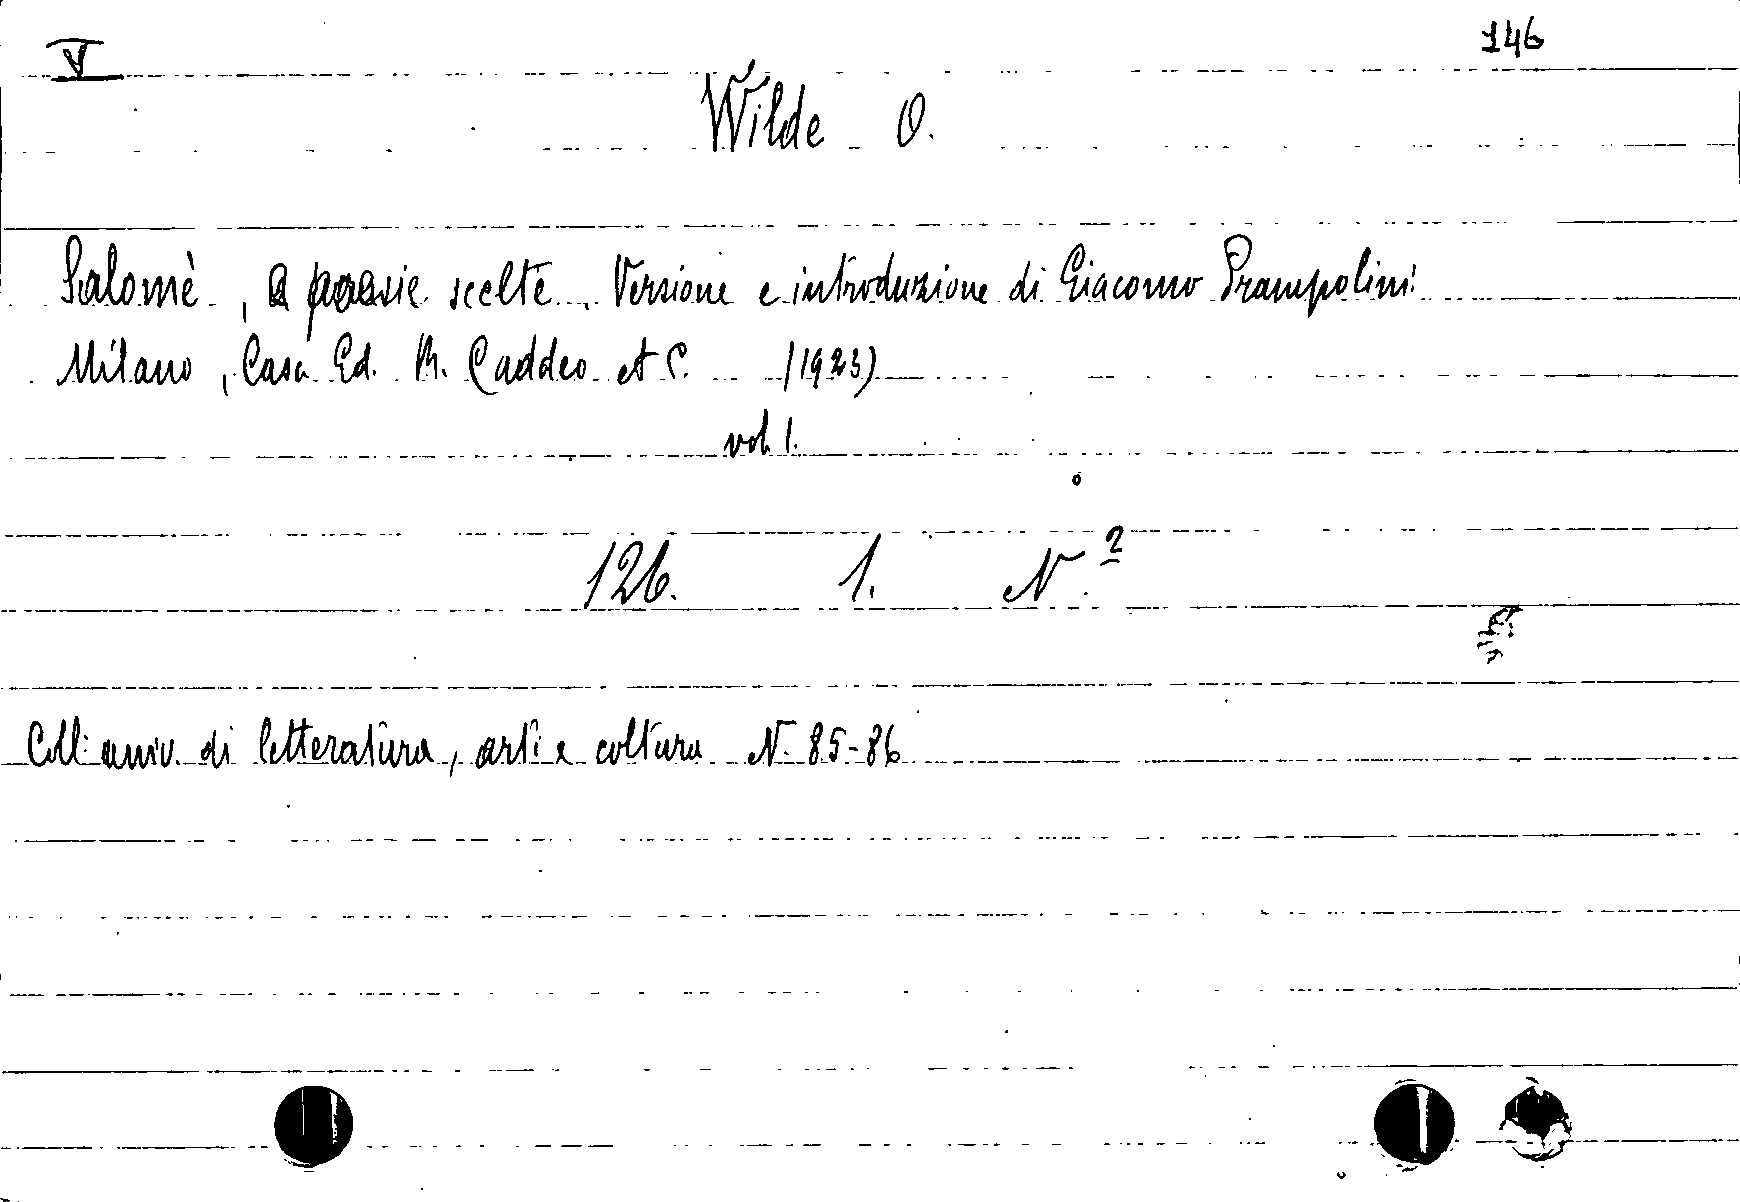 V
146
Wilde O.
Salomè, e poesie scelte. Versione e introduzione di Giacomo Prampolini
Milano, Casa Ed. R. Caddeo et C. (1923)
vol. 1.
126. 1. N.2
Coll. univ. di letteratura, arti e coltura N. 85-86